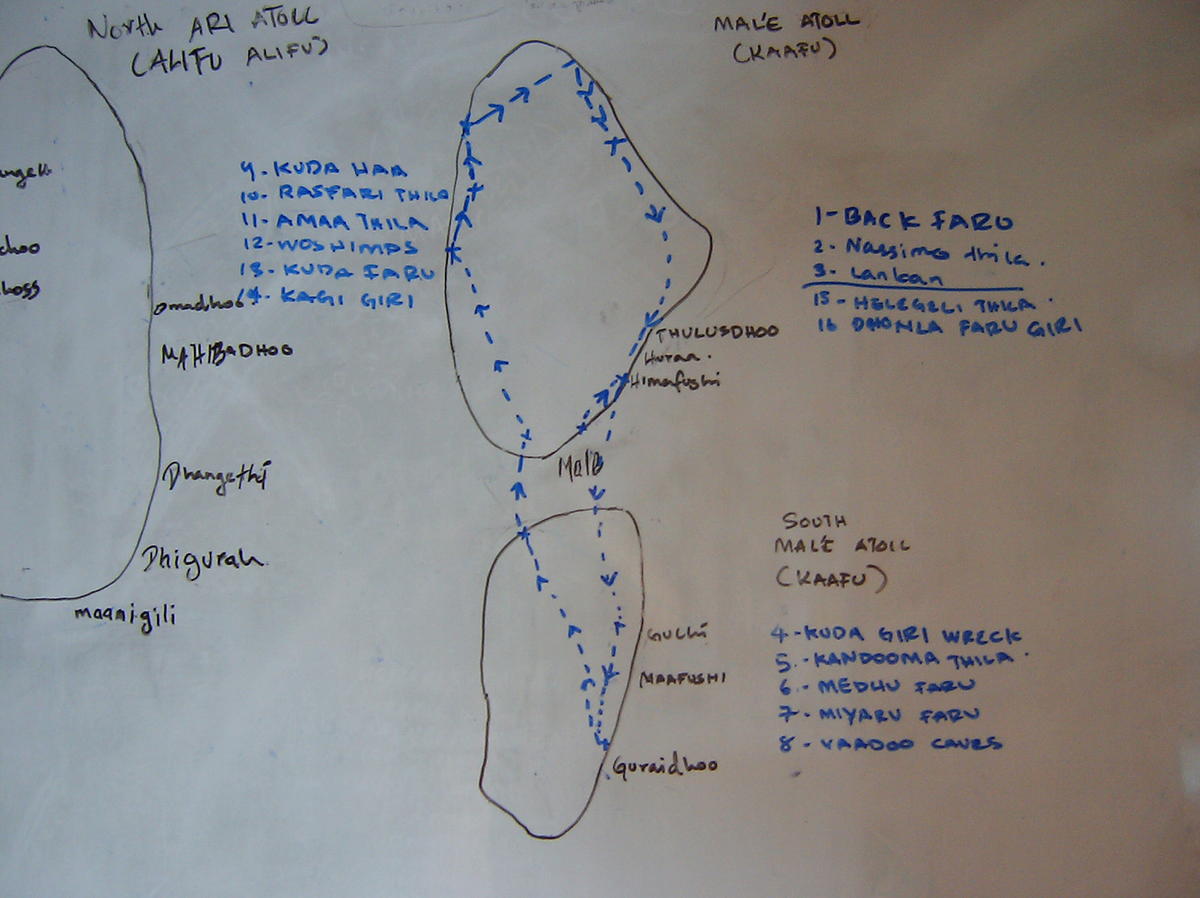 North ARI ATOLL
(ALIFU ALIFU)
MALE ATOLL
(KAAFU)
9- KUDA HAA
10- RASFARI THILA
11- AMAA THILA
12- WOSHIMPS
13- KUDA FARU
14- KAGI GIRI
1- BACK FARU
2- Nassimo thila.
3- Lankan
15- HELEGELI THILA
16 DHONLA FARU GIRI
omadhoo
MAHIBADHOO
Dhangethi
Dhigurah
maamigili
THULUSDHOO
Huraa.
Himafushi
Male
SOUTH
MALE ATOLL
(KAAFU)
GULHI
MAAFUSHI
Guraidhoo
4- KUDA GIRI WRECK
5- KANDOOMA THILA
6- MEDHU FARU
7- MIYARU FARU
8- VAADOO CAVES